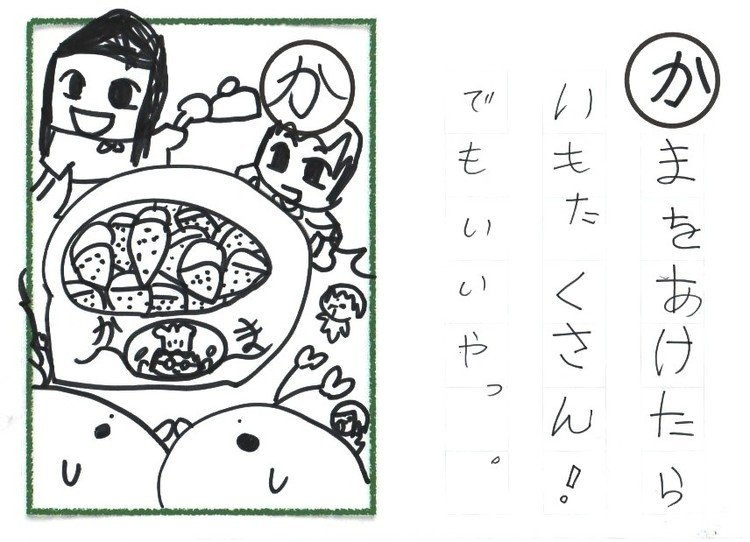 かまをあけたら
いもたくさん!
でもいいやっ。
か
かま